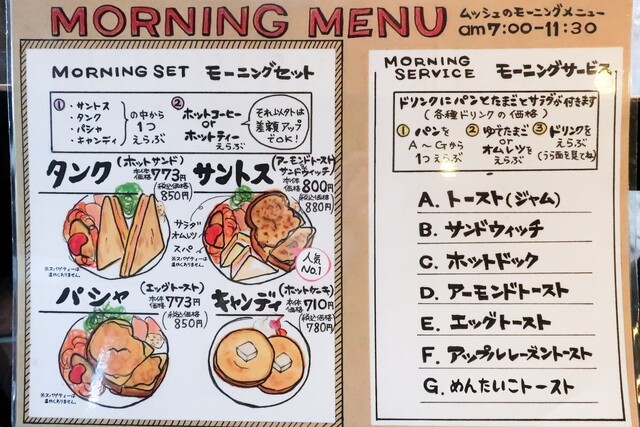 MORNING MENU
ムッシュのモーニングメニュー
am7:00-11:30
MORNING SET モーニングセット
① ・サントス
・タンク
・パシャ
・キャンディ
の中から
1つ
えらぶ
② ホットコーヒー
or
ホットティー
えらぶ
それ以外は
差額アップ
でOK!
タンク
(ホットサンド)
本体価格 773円
(税込価格)
850円
サントス
(アーモンドトースト
サンドウィッチ)
本体価格 800円
(税込価格)
880円
サラダ
オムレツ
スパ
人気
No.1
※スパゲティーは
温かくありません。
パシャ
(エッグトースト)
本体価格 773円
(税込価格)
850円
※スパゲティーは
温かくありません。
キャンディ
(ホットケーキ)
本体価格 710円
(税込価格)
780円
MORNING
SERVICE モーニングサービス
ドリンクにパンとたまごとサラダが付きます
(各種ドリンクの価格)
① パンを
A~Gから
1つえらぶ
② ゆでたまご
or
オムレツを
えらぶ
③ ドリンクを
えらぶ
(うら面を見てね)
A. トースト(ジャム)
B. サンドウィッチ
C. ホットドック
D. アーモンドトースト
E. エッグトースト
F. アップルレーズントースト
G. めんたいこトースト